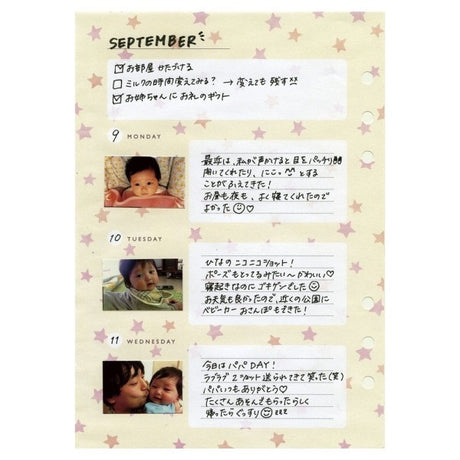 SEPTEMBER
☑お部屋かたづける
□ミルクの時間変えてみる？ → 変えても残す!!
☑お姉ちゃんにお礼のギフト
9 MONDAY
最近は、私が声かけると目をパッチリ
開いてくれたり、にこっ^^とする
ことがふえてきた！
お昼も夜も、よく寝てくれたので
よかった☺♡
10 TUESDAY
ひなのニコニコショット！
ポーズもとってるみたい〜かわいい♡
寝起きなのにゴキゲンでした☺
お天気も良かったので、近くの公園に
ベビーカーおさんぽもできた！
11 WEDNESDAY
今日はパパDAY！
ラブラブ2ショット送られてきて笑った(笑)
パパいつもありがとう♡
たくさんあそんでもらったらしく
帰ったらぐっすり☺zzz